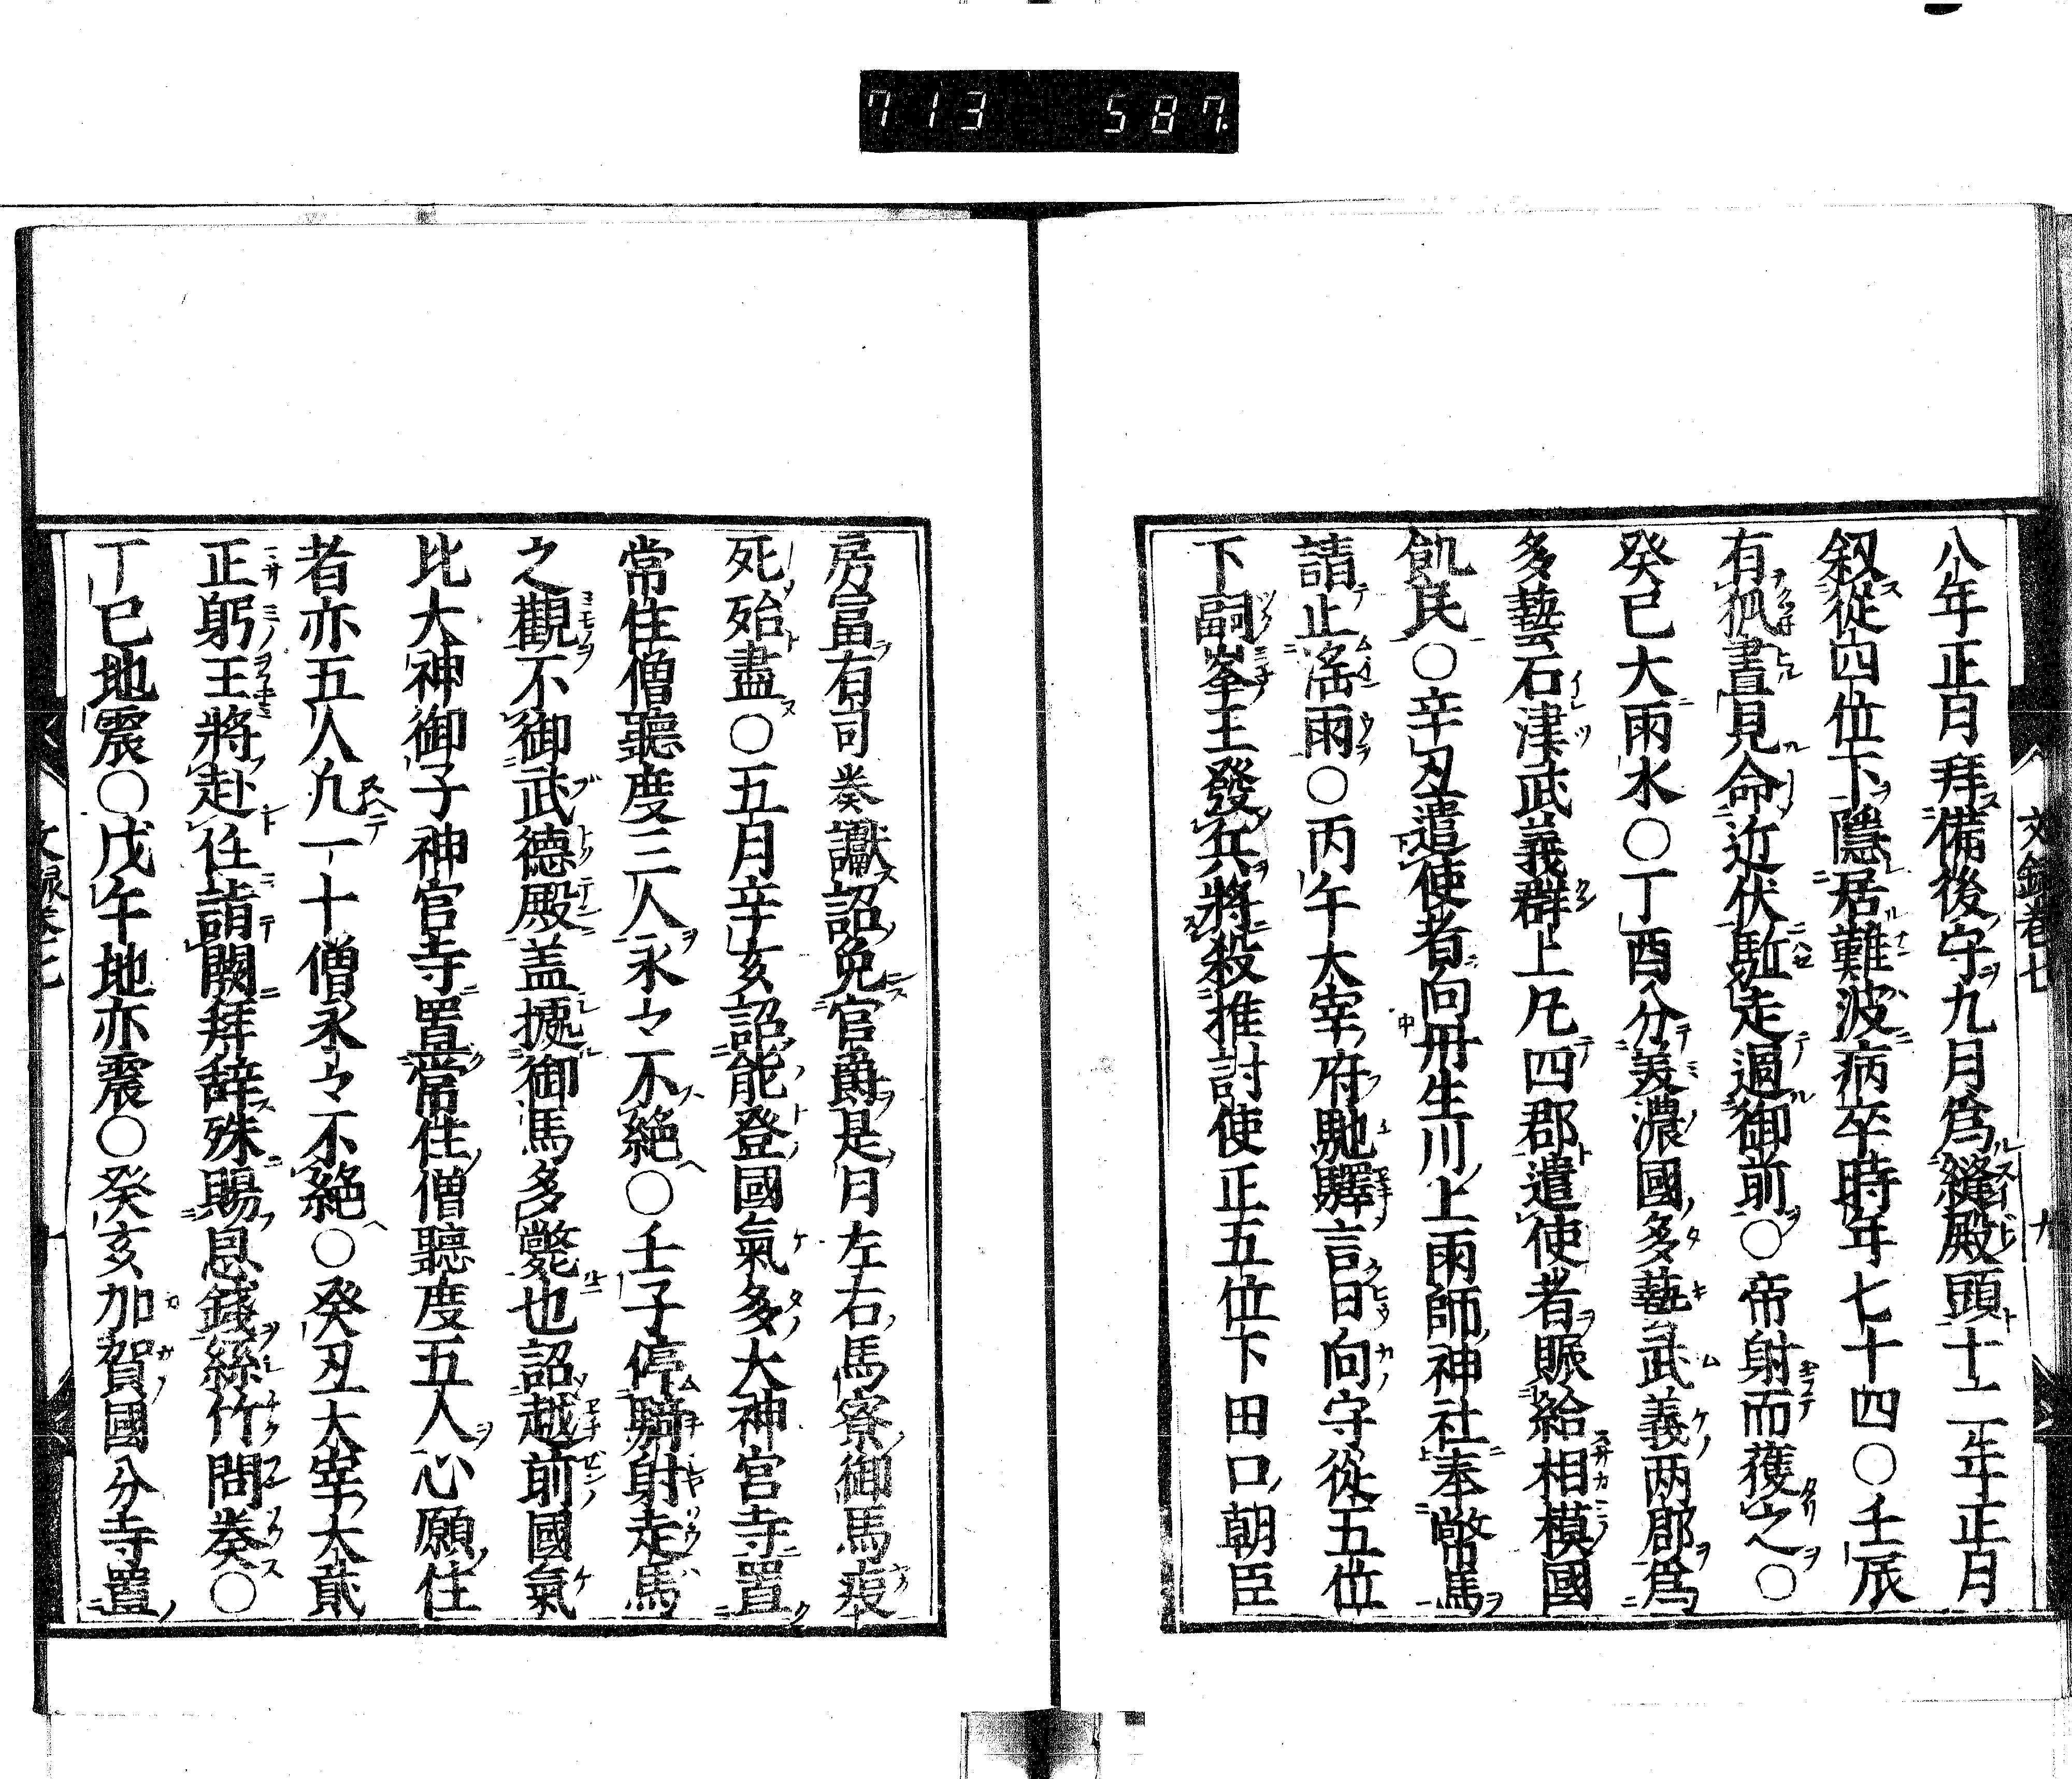 713 587
文錄卷七
八年正月拜備後守九月爲縫殿頭十二年正月
叙從四位下隱居難波病卒時年七十四○壬辰
有狐晝見命近伏駈走過御前○帝射而獲之○
癸巳大雨水○丁酉分美濃國多藝武義兩郡爲
多藝石津武義群上凡四郡遣使者賑給相模國
飢民○辛丑遣使者向丹生川上雨師神社奉幣馬
請止滛雨○丙午大宰府馳驛言日向守從五位
下嗣峯王發兵將殺推討使正五位下田口朝臣
房冨有司奏讞詔免官爵是月左右馬寮御馬疫
死殆盡○五月辛亥詔能登國氣多大神宮寺置
常住僧聽度三人永々不絕○壬子停騎射走馬
之觀不御武德殿盖擾御馬多斃也詔越前國氣
比大神御子神官寺置常住僧聽度五人心願住
者亦五人凡一十僧永々不絕○癸丑大宰大貳
正躬王將赴任詣闕拜辭殊賜恩錢絲竹問奏○
丁巳地震○戊午地亦震○癸亥加賀國分寺置
文錄卷七